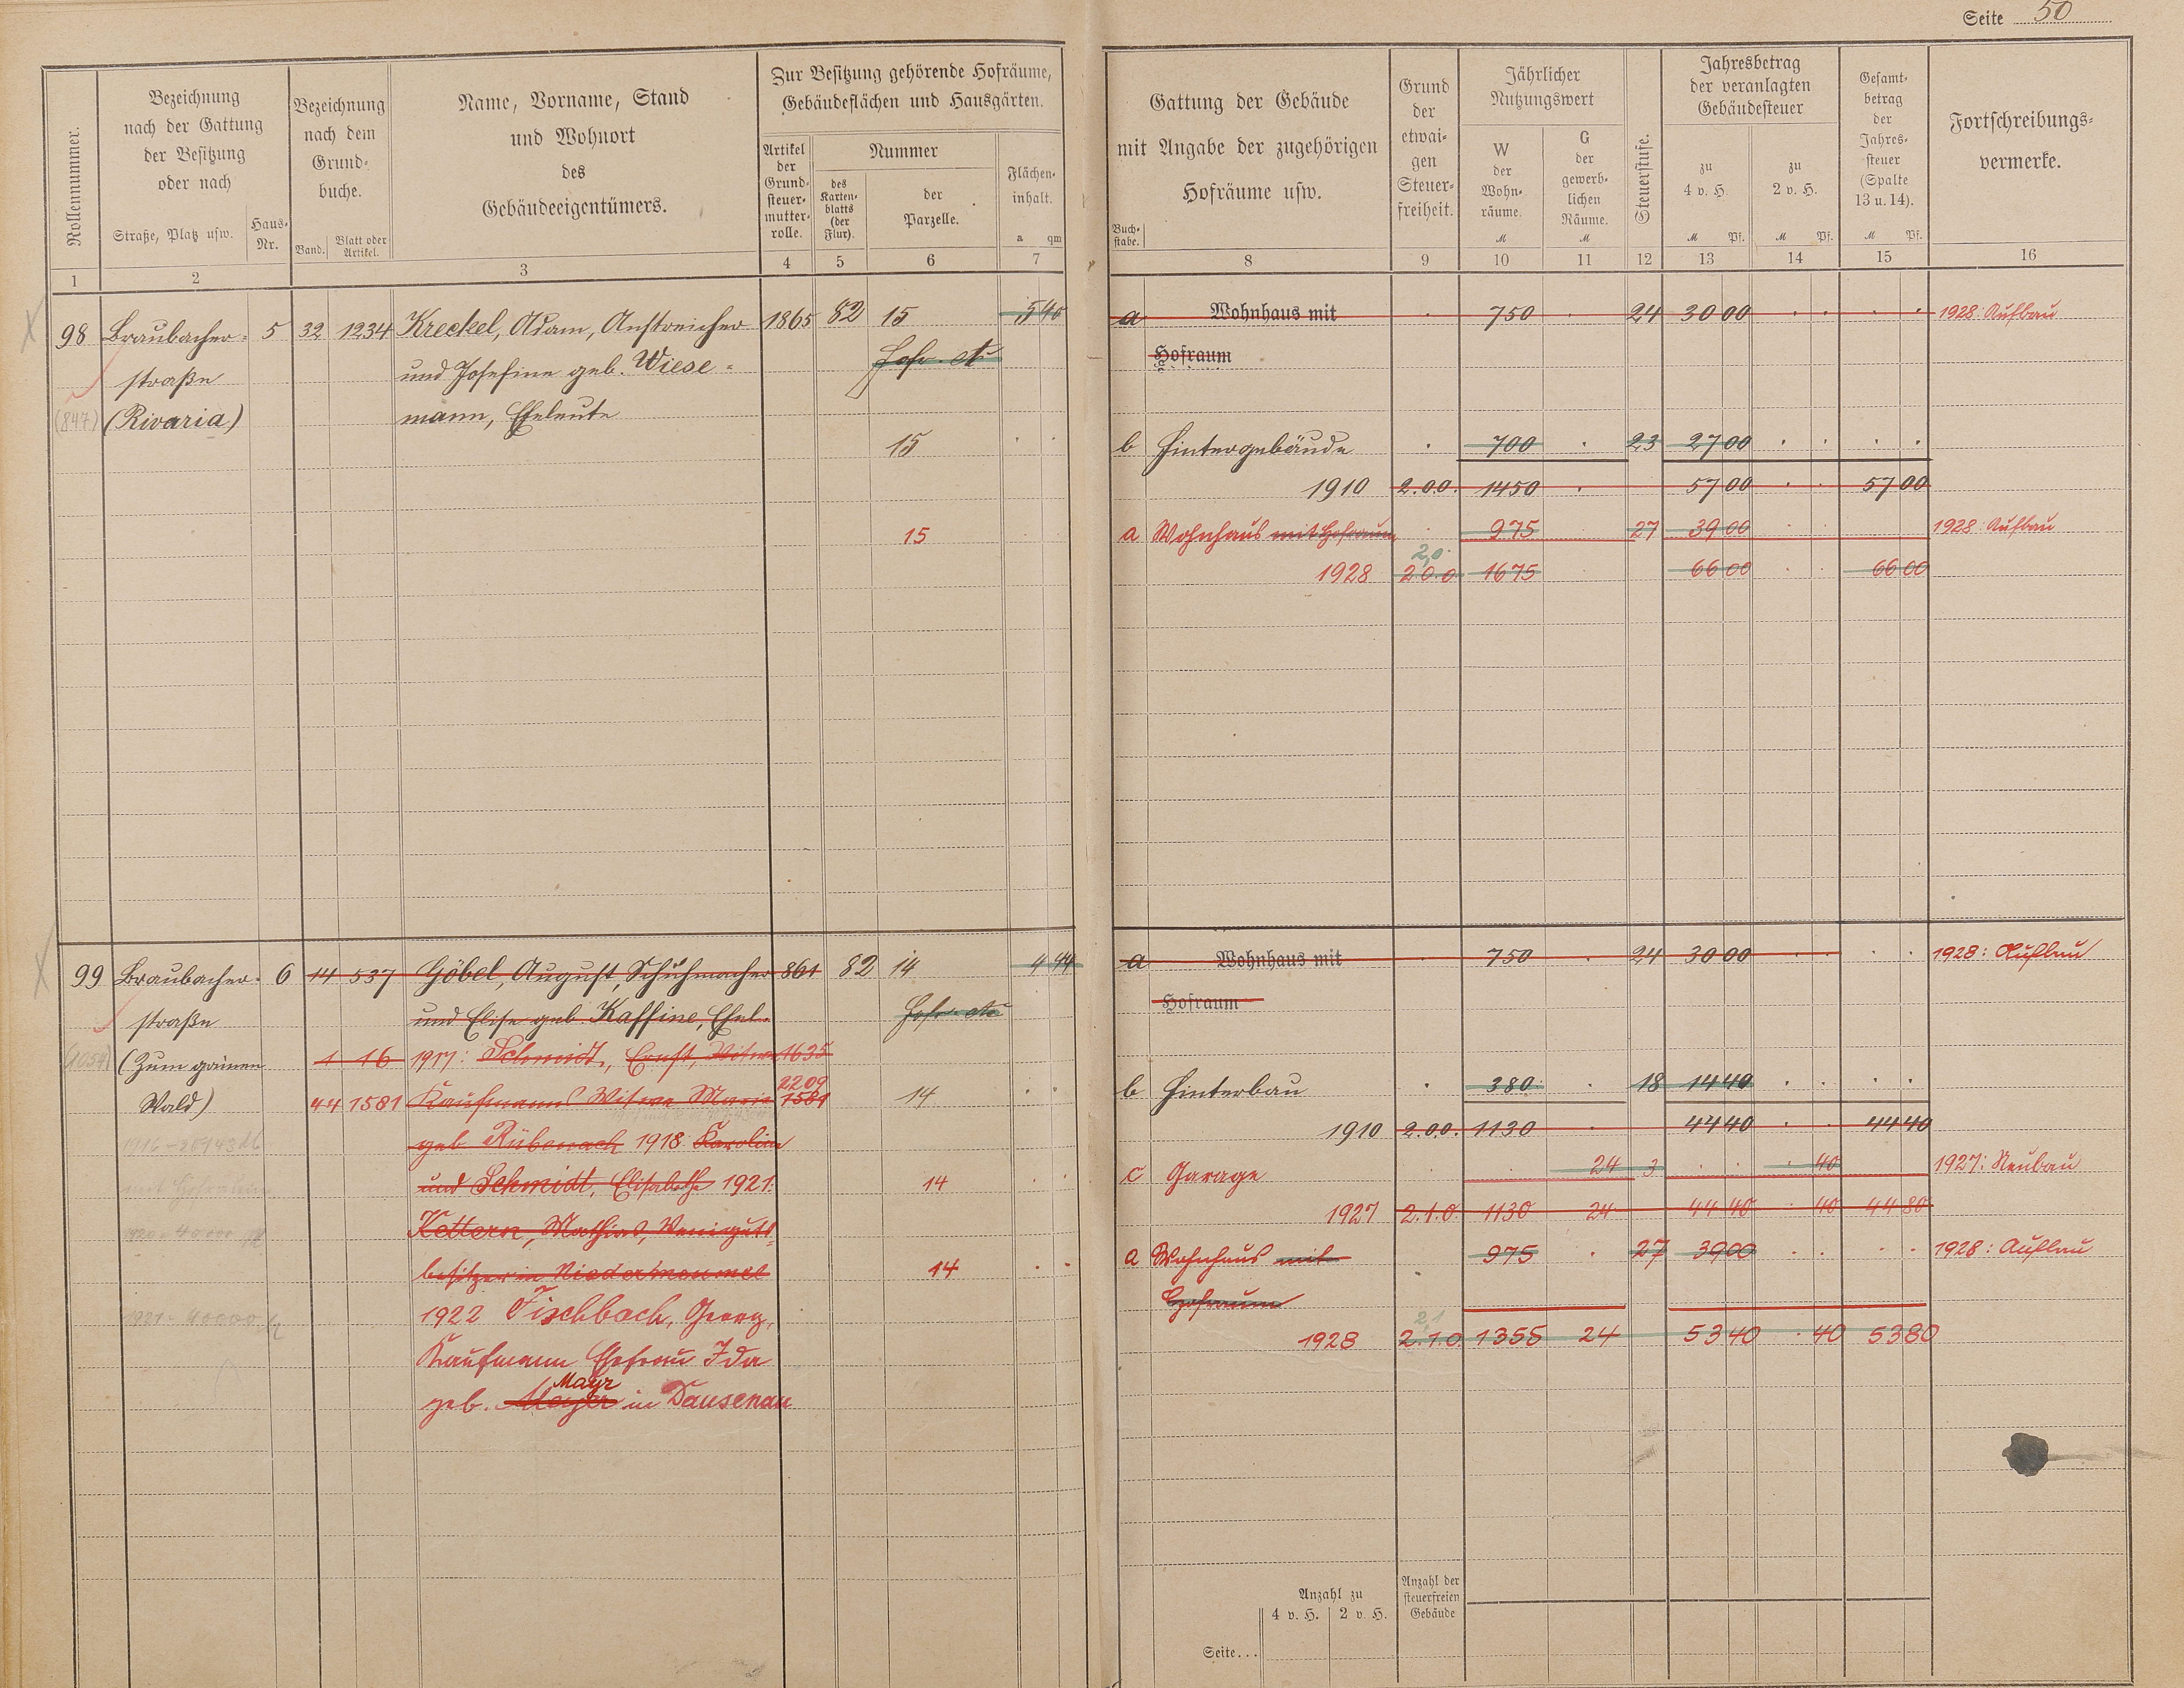 Seite 50
Rollennummer.
Bezeichnung
nach der Gattung
der Besitzung
oder nach
Straße, Platz usw.
Haus-
Nr.
Bezeichnung
nach dem
Grund-
buche.
Band.
Blatt oder
Artikel.
Name, Vorname, Stand
und Wohnort
des
Gebäudeeigentümers.
Zur Besitzung gehörende Hofräume,
Gebäudeflächen und Hausgärten.
Artikel
der
Grund-
steuer-
mutter-
rolle.
Nummer
des
Karten-
blatts
(der
Flur).
der
Parzelle.
Flächen-
inhalt.
a qm
1 2 3 4 5 6 7
Gattung der Gebäude
mit Angabe der zugehörigen
Hofräume usw.
Buch-
stabe.
Grund
der
etwai-
gen
Steuer-
freiheit.
Jährlicher
Nutzungswert
W
der
Wohn-
räume.
M
G
der
gewerb-
lichen
Räume.
M
Steuerstufe.
Jahresbetrag
der veranlagten
Gebäudesteuer
zu
4 v. H.
M Pf.
zu
2 v. H.
M Pf.
Gesamt-
betrag
der
Jahres-
steuer
(Spalte
13 u. 14).
M Pf.
Fortschreibungs-
vermerke.
8 9 10 11 12 13 14 15 16
98 Braubacher- 5 32 1234 Kreckel, Adam, Anstreicher 1865 82 15 5 40
straße und Josefine geb. Wiese-
(847) (Rivaria) mann, Eheleute
15
15
a Wohnhaus mit 750 24 30 00 1928 Aufbau
Hofraum
b Hintergebäude 700 23 27 00
1910 2.0.0. 1450 57 00 57 00
a Wohnhaus mit Hofraum 975 27 39 00 1928: Aufbau
2,0
1928 2 0 0 1675 66 00 66 00
99 Braubacher- 6 14 537 Göbel, August, Schuhmacher 861 82 14 4 94
straße und Elise geb. Kaffine, Ehel.
(1054) (Zum grünen 1 16 1917: Schmidt, Ernst, Witwe 1635
2209
Wald) 44 1581 Kaufmanns Witwe Marie 1581 14
geb. Rübenach 1918: Karoline
und Schmidt, Elisabethe 1921: 14
Kettern, Mathias, Weinguts-
besitzer in Niederbrommel 14
1922 Fischbach, Georg,
Kaufmann Ehefrau Ida
Mayr
geb. Mayer in Dausenau
a Wohnhaus mit 750 24 30 00 1928: Aufbau
Hofraum
b Hinterbau 380 18 14 40
1910 2.0.0. 1130 44 40 44 40
c Garage 24 3 40 1927: Neubau
1927 2.1.0. 1130 24 44 40 40 44 80
a Wohnhaus mit 975 27 39 00 1928: Aufbau
Hofraum
2,1
1928 2.1.0. 1355 24 53 40 40 53 80
Anzahl zu
4 v. H. 2 v. H.
Anzahl der
steuerfreien
Gebäude
Seite...